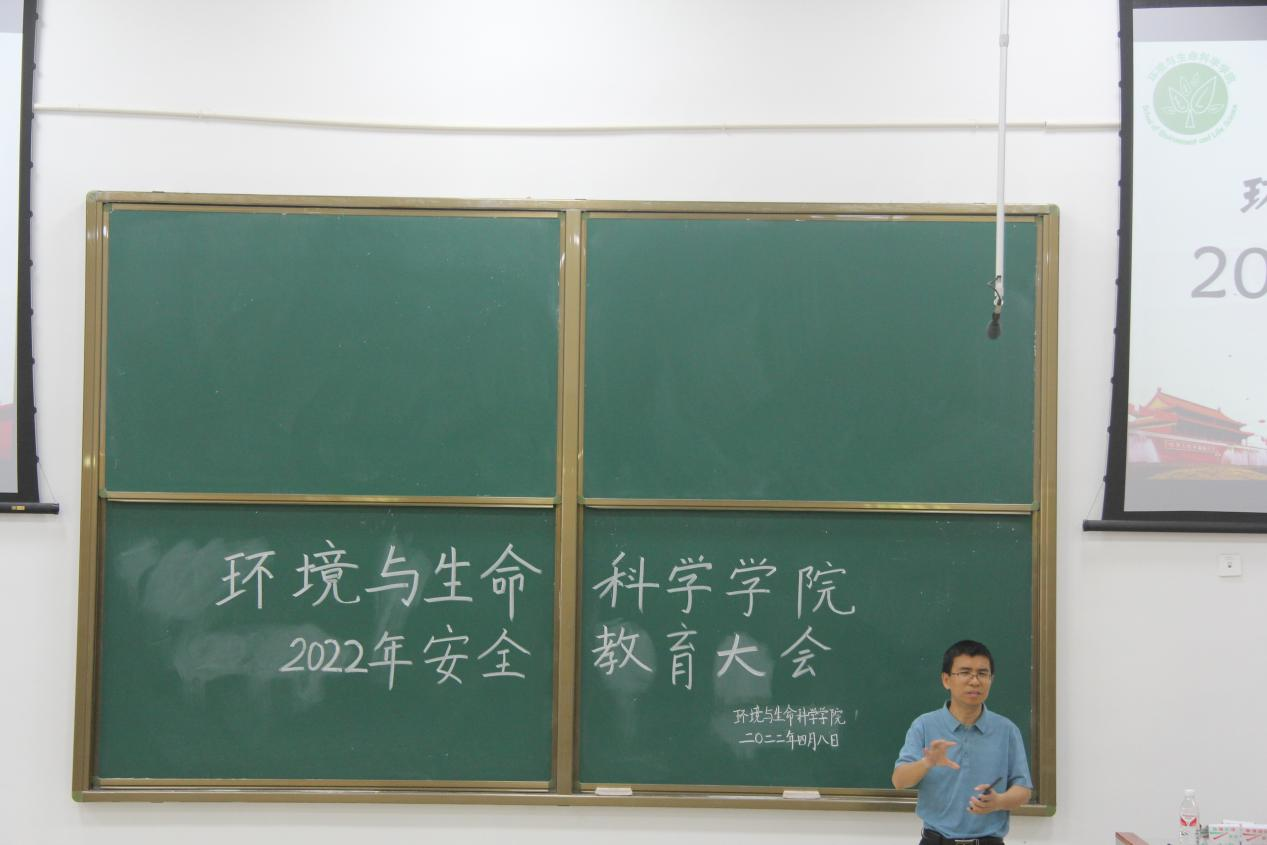 环境与生命科学学院
2022年安全教育大会
环境与生命科学学院
二〇二二年四月八日
环境与生命科学学院
School of Environment and Life Science
20